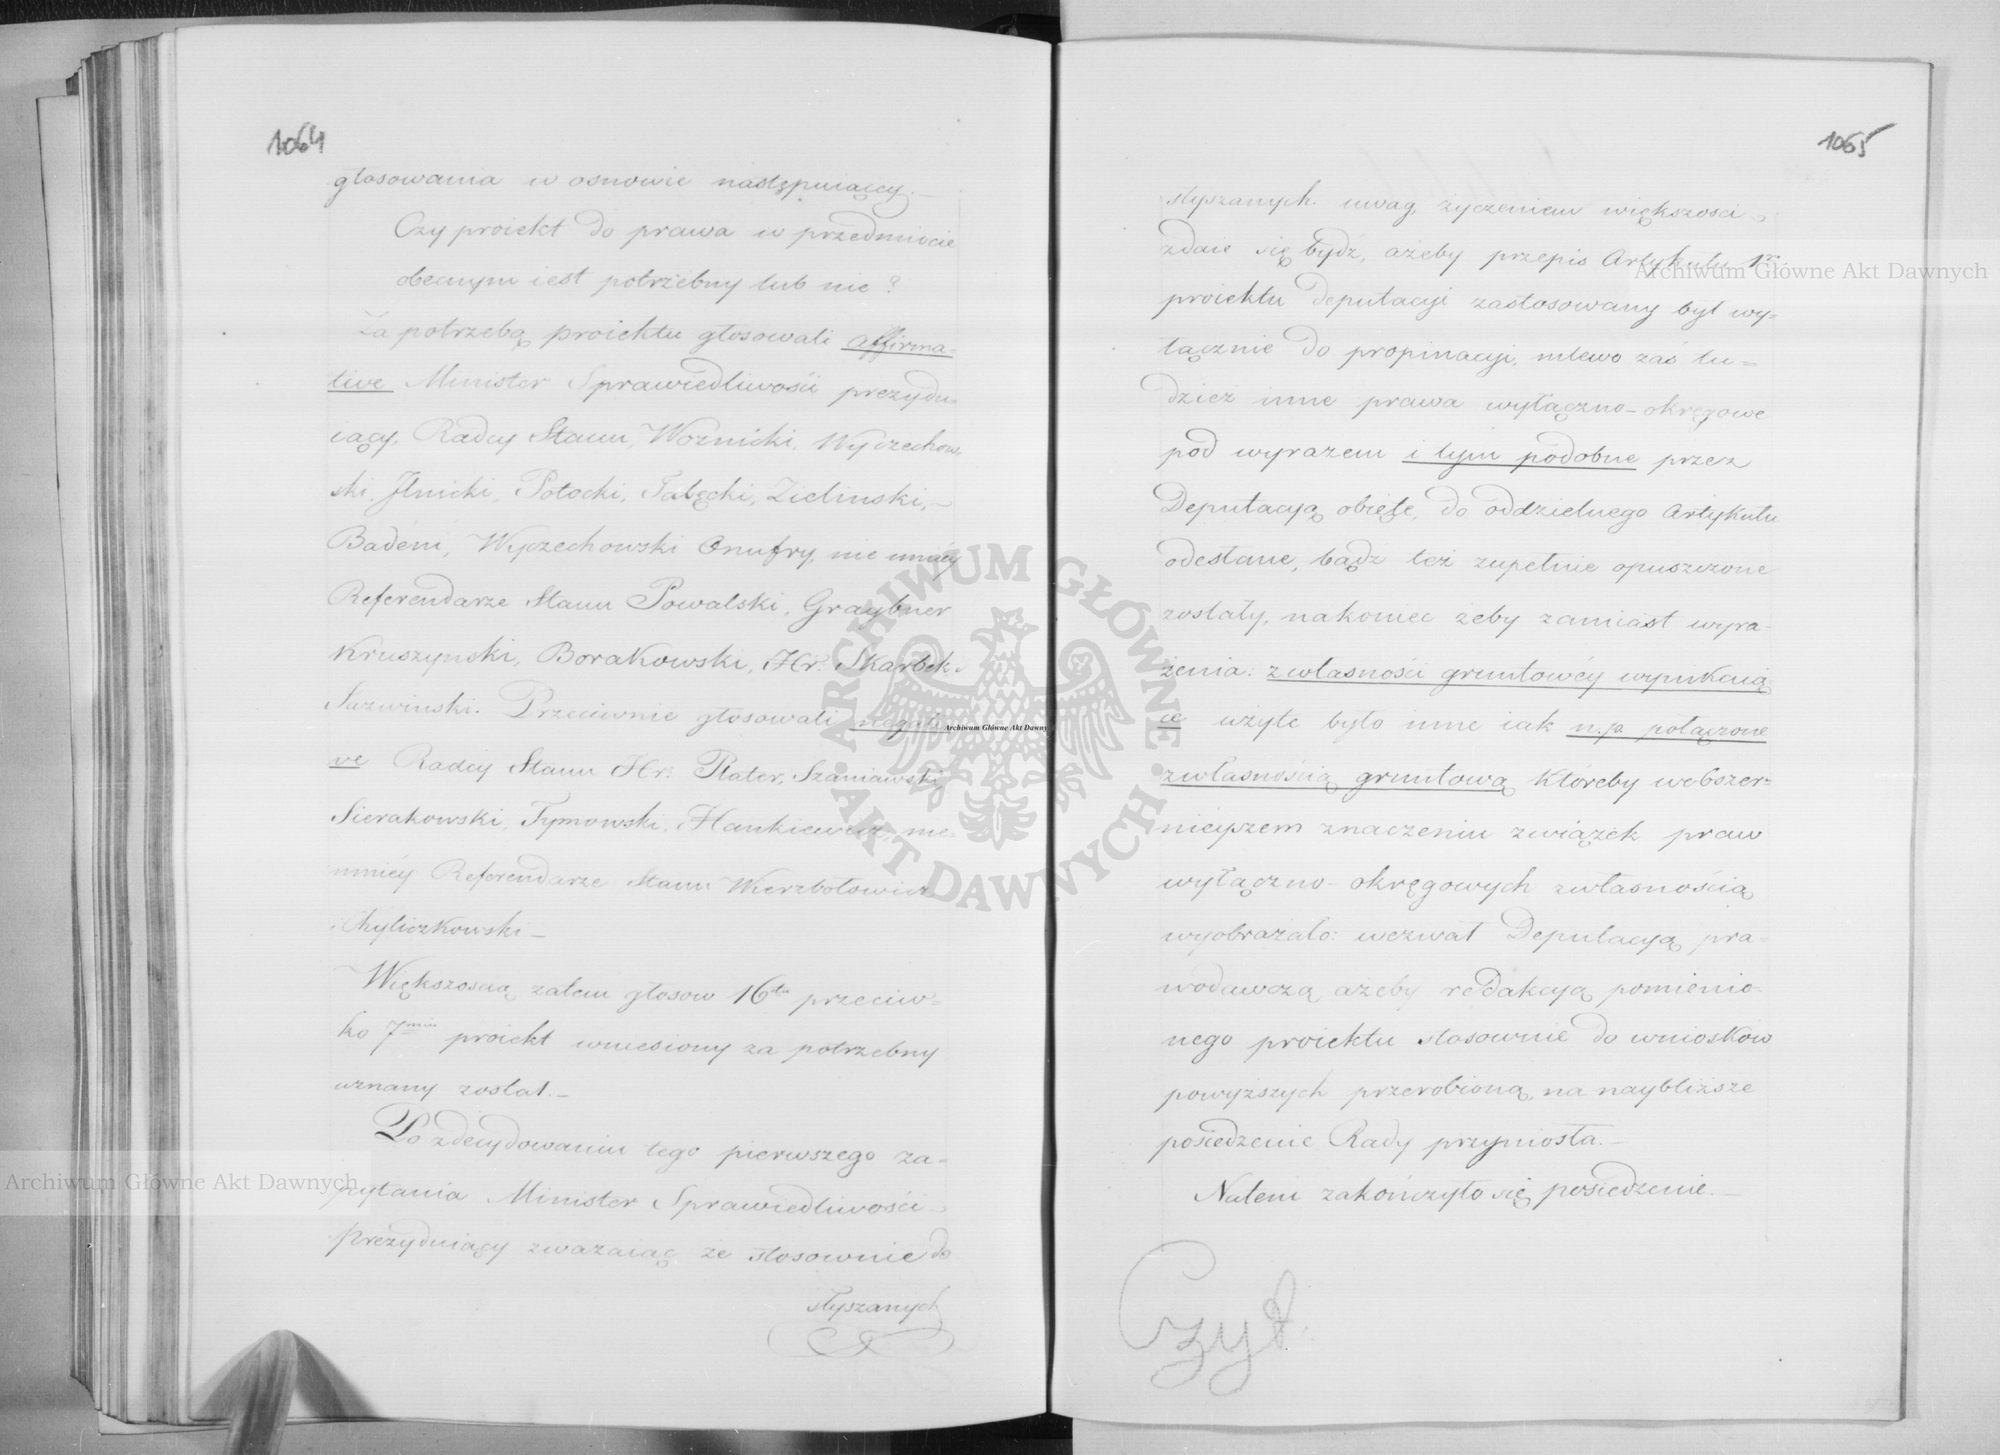 1064
głosowania w osnowie następuiący. —
Czy proiekt do prawa w przedmiocie
obecnym iest potrzebny lub nie?
Za potrzebą proiektu głosowali affirma-
tive Minister Sprawiedliwości prezydu-
iący, Radcy Stanu, Woźnicki, Wyczechow-
ski, Jlnicki, Potocki, Zieliński, —
Badeni, Wyczechowski Onufry, nie mniey
Referendarze Stanu Powalski, Graybner
Kruszyński, Borakowski, Hr. Skarbek i
Przeciwnie głosowali negati-
ve Radcy Stanu Hr. Plater, Szaniawski,
Sierakowski, Tymowski, Hankiewicz, nie-
mniéy Referendarze Stanu Wierzbołowicz
i Chyliczkowski —
Większoscią zatem głosow 16tu przeciw-
ko 7miu proiekt wniesiony za potrzebny
uznany został. —
Po zdecydowaniu tego pierwszego za-
pytania Minister Sprawiedliwości
Prezyduiący zważaiąc że stosownie do
słyszanych
1065
słyszanych uwag, życzeniem większości
zdaie się bydź, ażeby przepis Artykułu 1go
proiektu Deputacyi zastosowany był wy-
łącznie do propinacyi, mlewo zaś tu-
dzież inne prawa wyłączno-okręgowe
pod wyrazem i tym podobne przez
Deputacyą obięte, do oddzielnego Artykułu
odesłane, bądź też zupełnie opuszczone
zostały, nakoniec żeby zamiast wyra-
żenia: z własności gruntowéy wynikaią
ce użyte było inne iak n.p. połączone
z własnością gruntową któreby w obszer-
nieyszem znaczeniu związek praw
wyłączno-okręgowych z własnością
wyobrażało: wezwał Deputacyą pra-
wodawczą ażeby redakcyą pomienio-
nego proiektu stosownie do wniosków
powyższych przerobioną, na naybliższe
posiedzenie Rady przyniosła. —
Natem zakończyło się posiedzenie. —
Czyt.
Archiwum Główne Akt Dawnych
Archiwum Główne Akt Dawnych
Archiwum Główne Akt Dawnych
ARCHIWUM GŁÓWNE AKT DAWNYCH